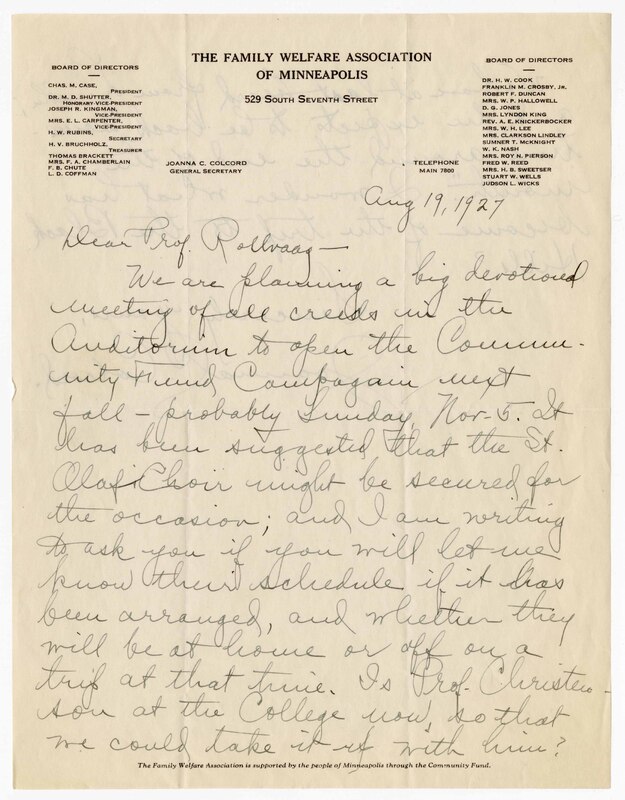 THE FAMILY WELFARE ASSOCIATION
OF MINNEAPOLIS
529 SOUTH SEVENTH STREET
BOARD OF DIRECTORS
CHAS. M. CASE,
PRESIDENT
DR. M. D. SHUTTER,
HONORARY-VICE-PRESIDENT
JOSEPH R. KINGMAN,
VICE-PRESIDENT
MRS. E. L. CARPENTER,
VICE-PRESIDENT
H. W. RUBINS,
SECRETARY
H. V. BRUCHHOLZ,
TREASURER
THOMAS BRACKETT
MRS. F. A. CHAMBERLAIN
F. B. CHUTE
L. D. COFFMAN
JOANNA C. COLCORD
GENERAL SECRETARY
TELEPHONE
MAIN 7800
BOARD OF DIRECTORS
DR. H. W. COOK
FRANKLIN M. CROSBY, JR.
ROBERT F. DUNCAN
MRS. W. P. HALLOWELL
D. G. JONES
MRS. LYNDON KING
REV. A. E. KNICKERBOCKER
MRS. W. H. LEE
MRS. CLARKSON LINDLEY
SUMNER T. McKNIGHT
W. K. NASH
MRS. ROY N. PIERSON
FRED W. REED
MRS. H. B. SWEETSER
STUART W. WELLS
JUDSON L. WICKS
Aug 19, 1927
Dear Prof. Rollvaag—
We are planning a big devotional
meeting of all creeds in the
Auditorium to open the Commu-
nity Fund Campagain next
fall – probably Sunday, Nov. 5. It
has been suggested that the St.
Olaf Choir might be secured for
the occasion; and I am writing
to ask you if you will let me
know their schedule if it has
been arranged, and whether they
will be at home or off on a
trip at that time. Is Prof. Christen-
son at the College now, so that
we could take it up with him?
The Family Welfare Association is supported by the people of Minneapolis through the Community Fund.